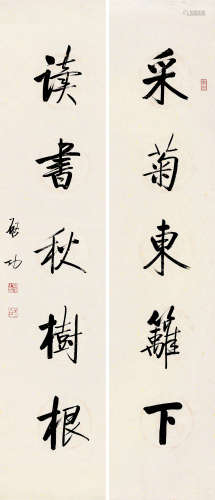 采菊東籬下
读書秋樹根
啟功